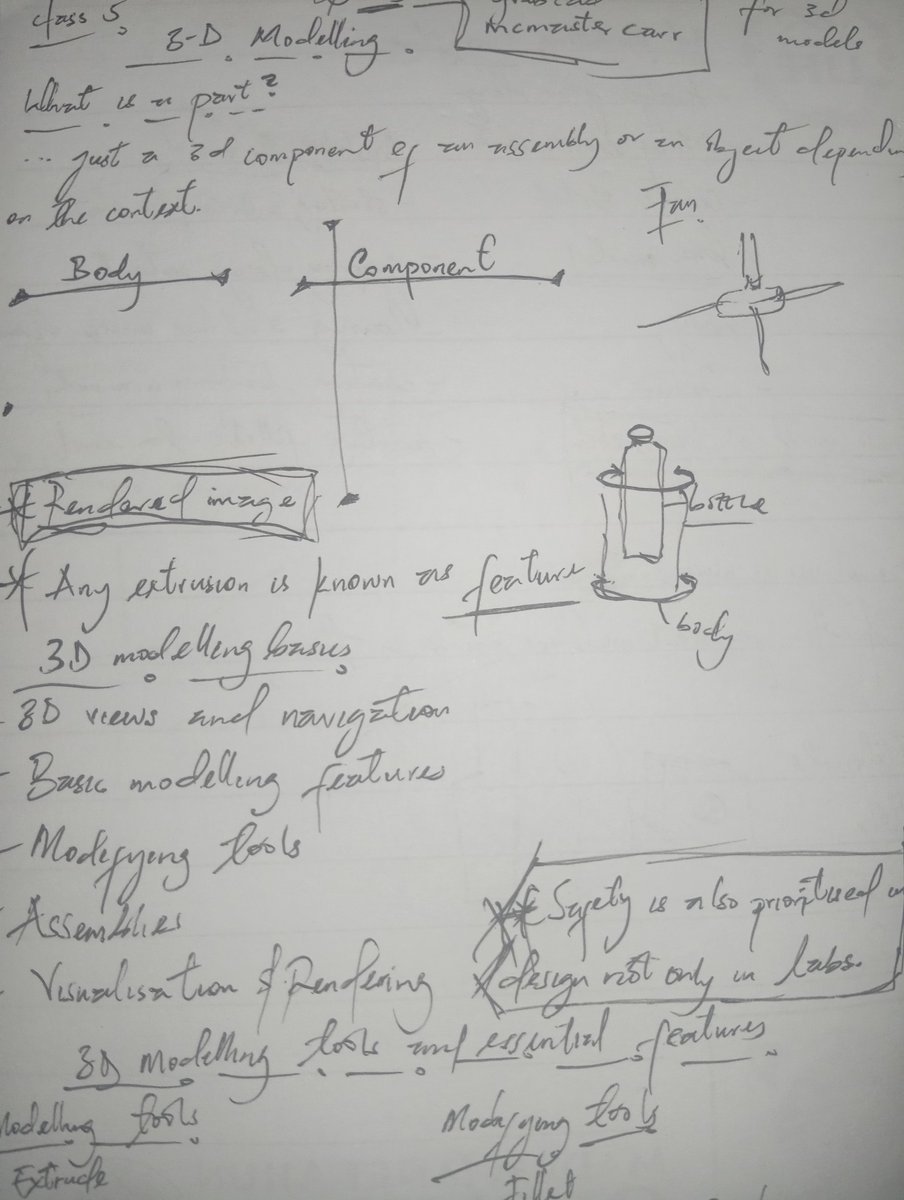 class 5
3-D Modelling.
mcmaster carr
for 3d models
What is a part?
... just a 3d component of an assembly or an object depend
on the context.
Fan.
Body
Component
* Rendered image
bottle
* Any extrusion is known as feature
body
3D modelling basics
- 3D views and navigation
- Basic modelling features
- Modifying tools
- Assemblies
** Safety is also prioritised
design not only in labs.
- Visualisation & Rendering
3D modelling tools and essential features
Modelling tools
Modifying tools
Extrude
Fillet